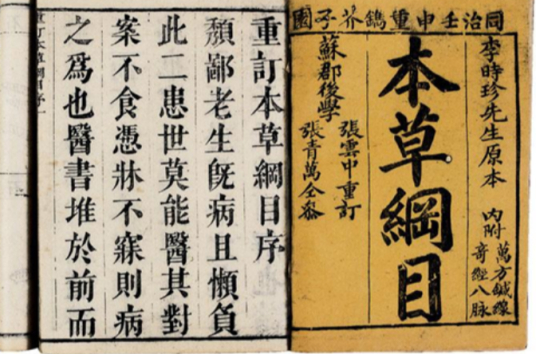 同治壬申重鐫芥子園
李時珍先生原本
內附
萬方鍼線
奇經八脉
本草綱目
蘇郡後學
張雲中重訂
張青萬全參
重訂本草綱目序
頹鄙老生旣病且懶負
此二患世莫能醫其對
案不食憑牀不寐則病
之爲也醫書堆於前而